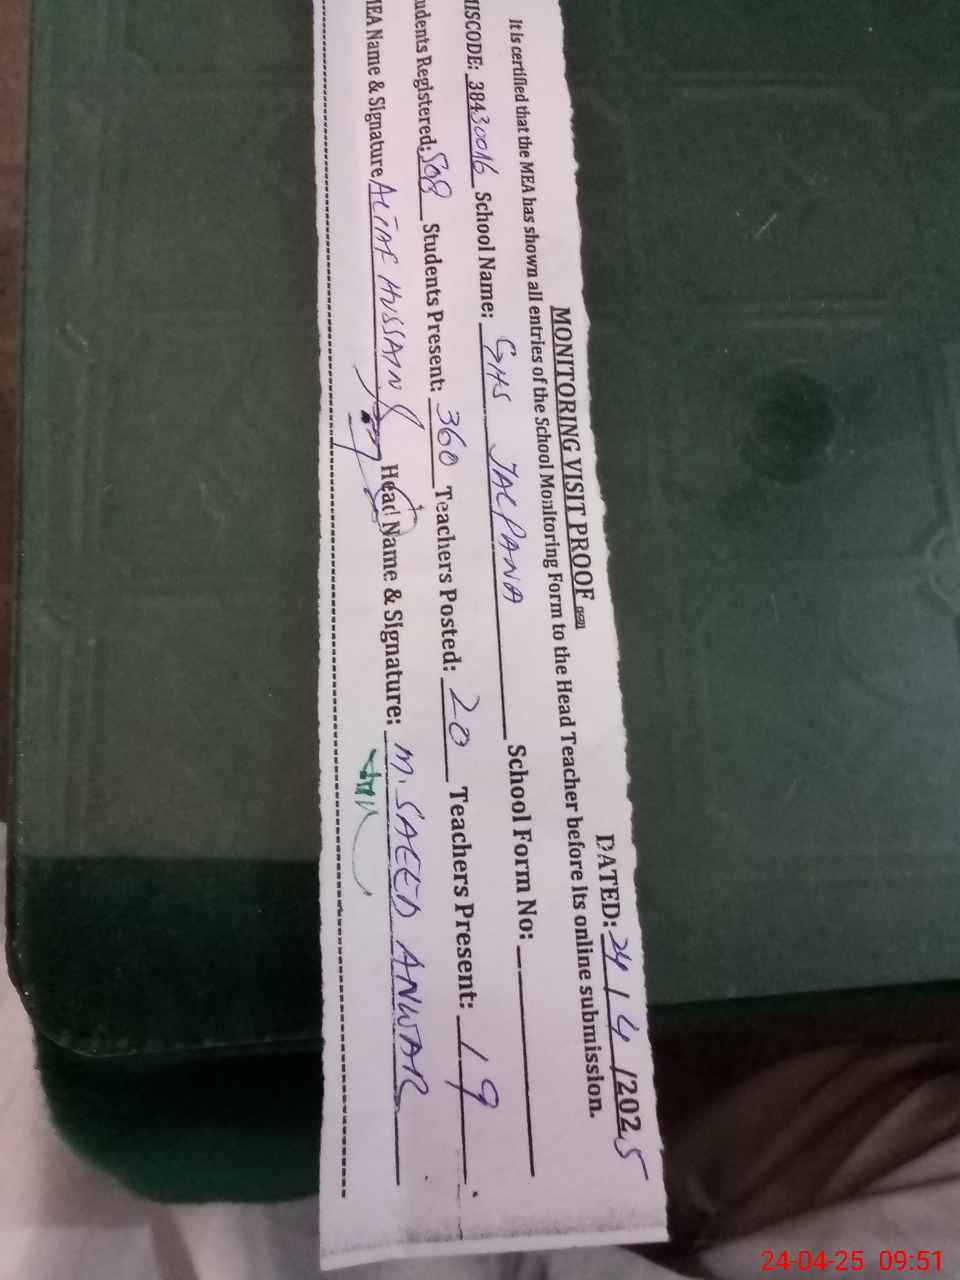 MONITORING VISIT PROOF
DATED: 24 / 4 /2025
It is certified that the MEA has shown all entries of the School Monitoring Form to the Head Teacher before its online submission.
ISCODE: 38430016 School Name: GHS JALPANA School Form No:
udents Registered: 508 Students Present: 360 Teachers Posted: 20 Teachers Present: 19
MEA Name & Signature ALTAF HUSSAIN Head Name & Signature: M. SAEED ANWAR
24-04-25 09:51